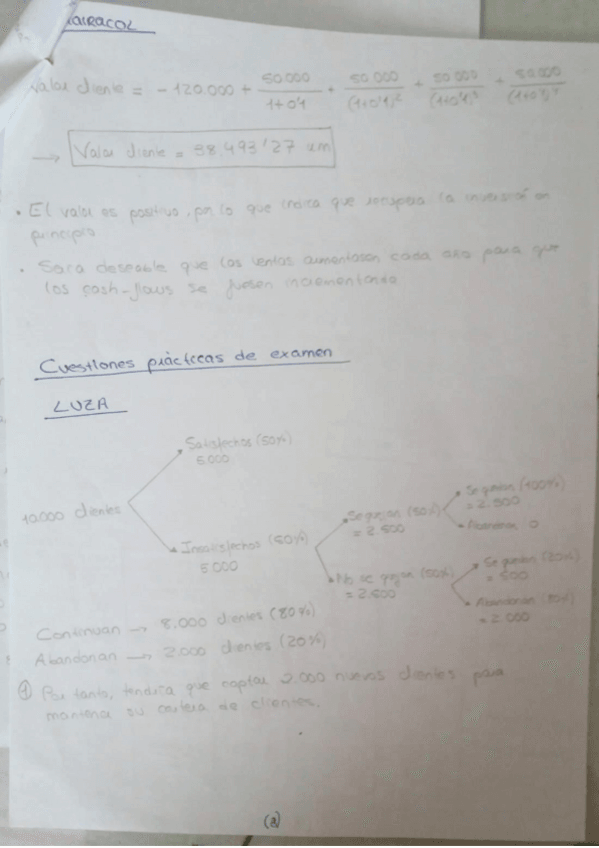 AIRACOL
Valor cliente = -120.000 + 50.000/1+0'1 + 50.000/(1+0'1)² + 50.000/(1+0'1)³ + 50.000/(1+0'1)⁴
→ Valor cliente = 38.493'27 um
• El valor es positivo, por lo que indica que recupera la inversión en
principio
• Sera deseable que las ventas aumentasen cada año para que
los cash-flows se fuesen incrementando
Cuestiones prácticas de examen
LUZA
Satisfechos (50%)
5.000
10.000 clientes
Insatisfechos (50%)
5.000
Se quejan (50%)
= 2.500
Se quedan (100%)
= 2.500
Abandonan 0
No se quejan (50%)
= 2.500
Se quedan (20%)
= 500
Abandonan (80%)
= 2.000
Continuan → 8.000 clientes (80%)
Abandonan → 2.000 clientes (20%)
① Por tanto, tendría que captar 2.000 nuevos clientes para
mantener su cartera de clientes.
(2)